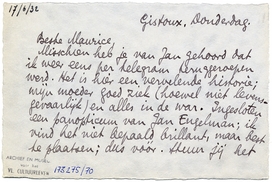 17/6/32
Gistoux, Donderdag.
Beste Maurice,
Misschien heb je van Jan gehoord dat
ik weer eens per telegram teruggeroepen
werd. Het is hier een vervelende historie;
mijn moeder goed ziek (hoewel niet levens-
gevaarlijk) en alles in de war. Ingesloten
een panopticum van Jan Engelman; ik
vind het niet bepaald brillant, maar best
te plaatsen; dus voor. Stuur jij het
ARCHIEF EN MUSEUM
VOOR HET
VL. CULTUURLEVEN
178275/70